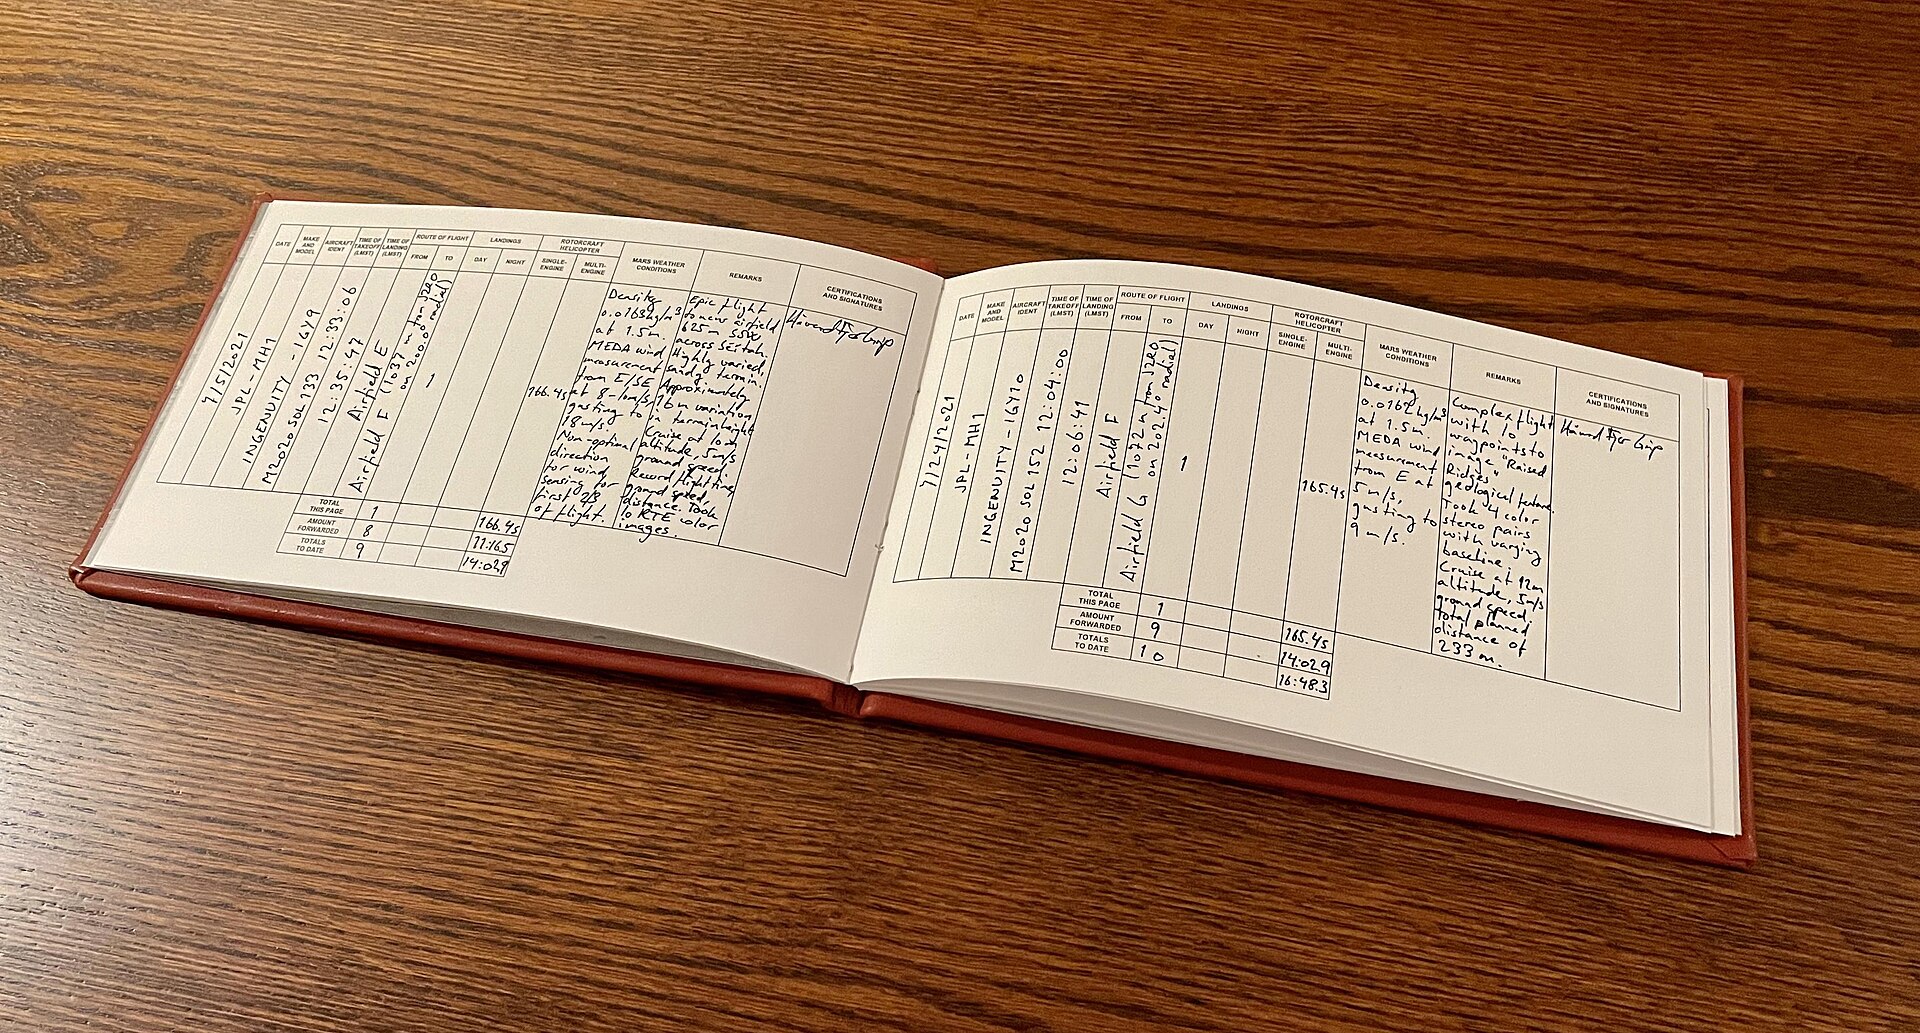 DATE
MAKE AND MODEL
AIRCRAFT IDENT
TIME OF TAKEOFF (LMST)
TIME OF LANDING (LMST)
ROUTE OF FLIGHT
FROM
TO
LANDINGS
DAY
NIGHT
ROTORCRAFT HELICOPTER
SINGLE-ENGINE
MULTI-ENGINE
MARS WEATHER CONDITIONS
REMARKS
CERTIFICATIONS AND SIGNATURES
7/5/2021
JPL-MH1
INGENUITY - IGY9
M2020 SOL 133 12:33:06
12:35:47
Airfield E
Airfield F (1037 m from JZRO
on 200.0° radial)
1
166.4s
Density
0.0163kg/m³
at 1.5m.
MEDA wind
measurement
from E/SE
at 8-10m/s,
gusting to
18m/s.
Non-optimal
direction
for wind
sensing for
first 2/3
of flight.
Epic flight
to new airfield
625m SSW
across Séítah.
Highly varied,
sandy terrain.
Approximately
16m variation
in terrain height
Cruise at 10m
altitude, 5m/s
ground speed.
Record flight time,
ground speed,
distance. Took
10 RTE color
images.
Håvard Fjær Grip
TOTAL THIS PAGE
1
166.4s
AMOUNT FORWARDED
8
11:16.5
TOTALS TO DATE
9
14:02.9
DATE
MAKE AND MODEL
AIRCRAFT IDENT
TIME OF TAKEOFF (LMST)
TIME OF LANDING (LMST)
ROUTE OF FLIGHT
FROM
TO
LANDINGS
DAY
NIGHT
ROTORCRAFT HELICOPTER
SINGLE-ENGINE
MULTI-ENGINE
MARS WEATHER CONDITIONS
REMARKS
CERTIFICATIONS AND SIGNATURES
7/24/2021
JPL-MH1
INGENUITY - IGY10
M2020 SOL 152 12:04:00
12:06:41
Airfield F
Airfield G (1072 m from JZRO
on 202.4° radial)
1
165.4s
Density
0.0162kg/m³
at 1.5m.
MEDA wind
measurement
from E at
5m/s,
gusting to
9m/s.
Complex flight
with 10
waypoints to
image "Raised
Ridges"
geological feature.
Took 4 color
stereo pairs
with varying
baseline.
Cruise at 12m
altitude, 5m/s
ground speed
Total planned
distance of
233 m.
Håvard Fjær Grip
TOTAL THIS PAGE
1
165.4s
AMOUNT FORWARDED
9
14:02.9
TOTALS TO DATE
10
16:48.3